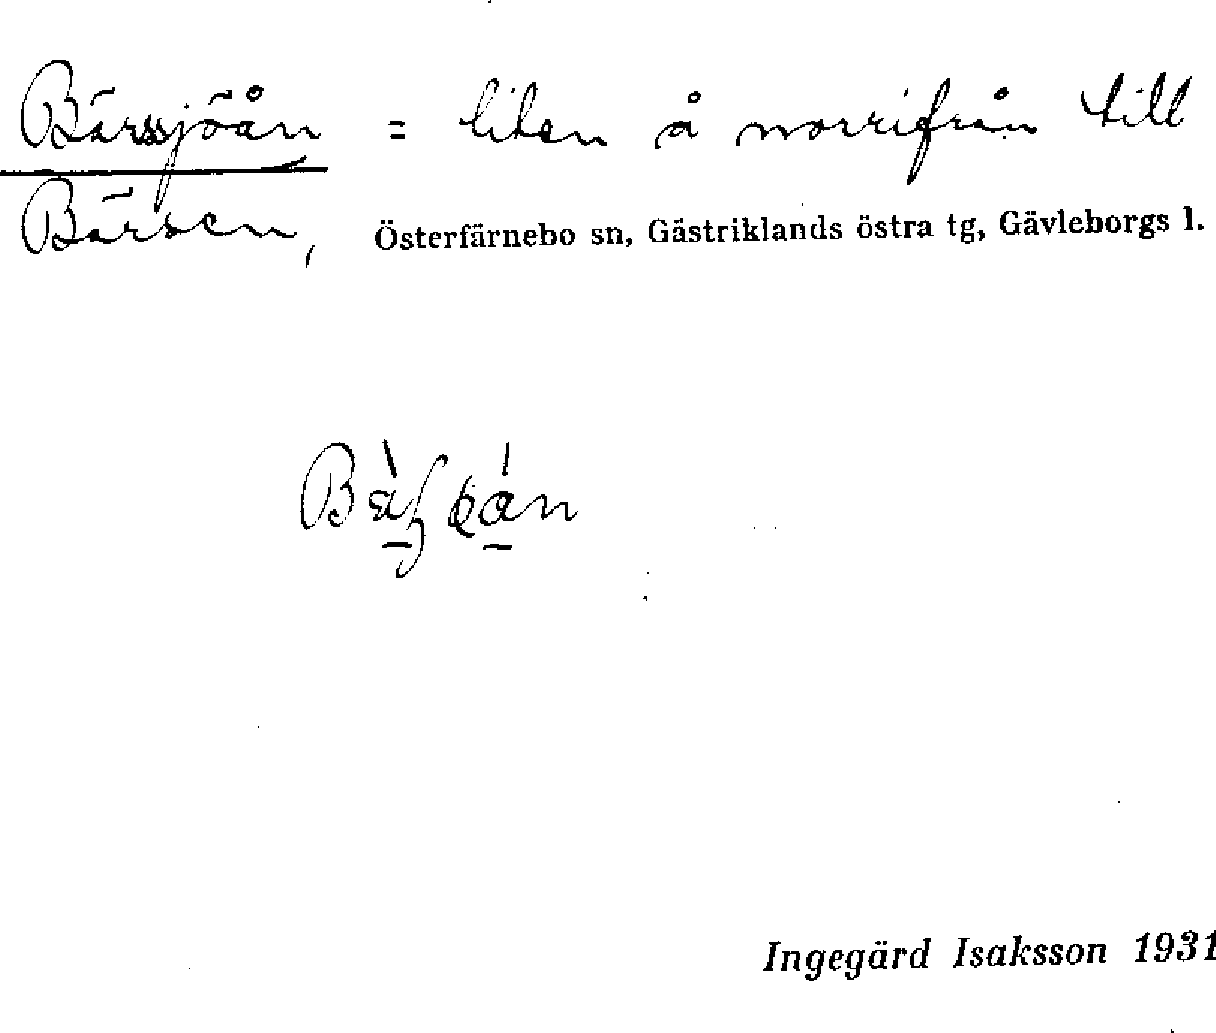 Bärssjöån = liten å norrifrån till
Bärsen, Österfärnebo sn, Gästriklands östra tg, Gävleborgs l.
Ingegärd Isaksson 1931